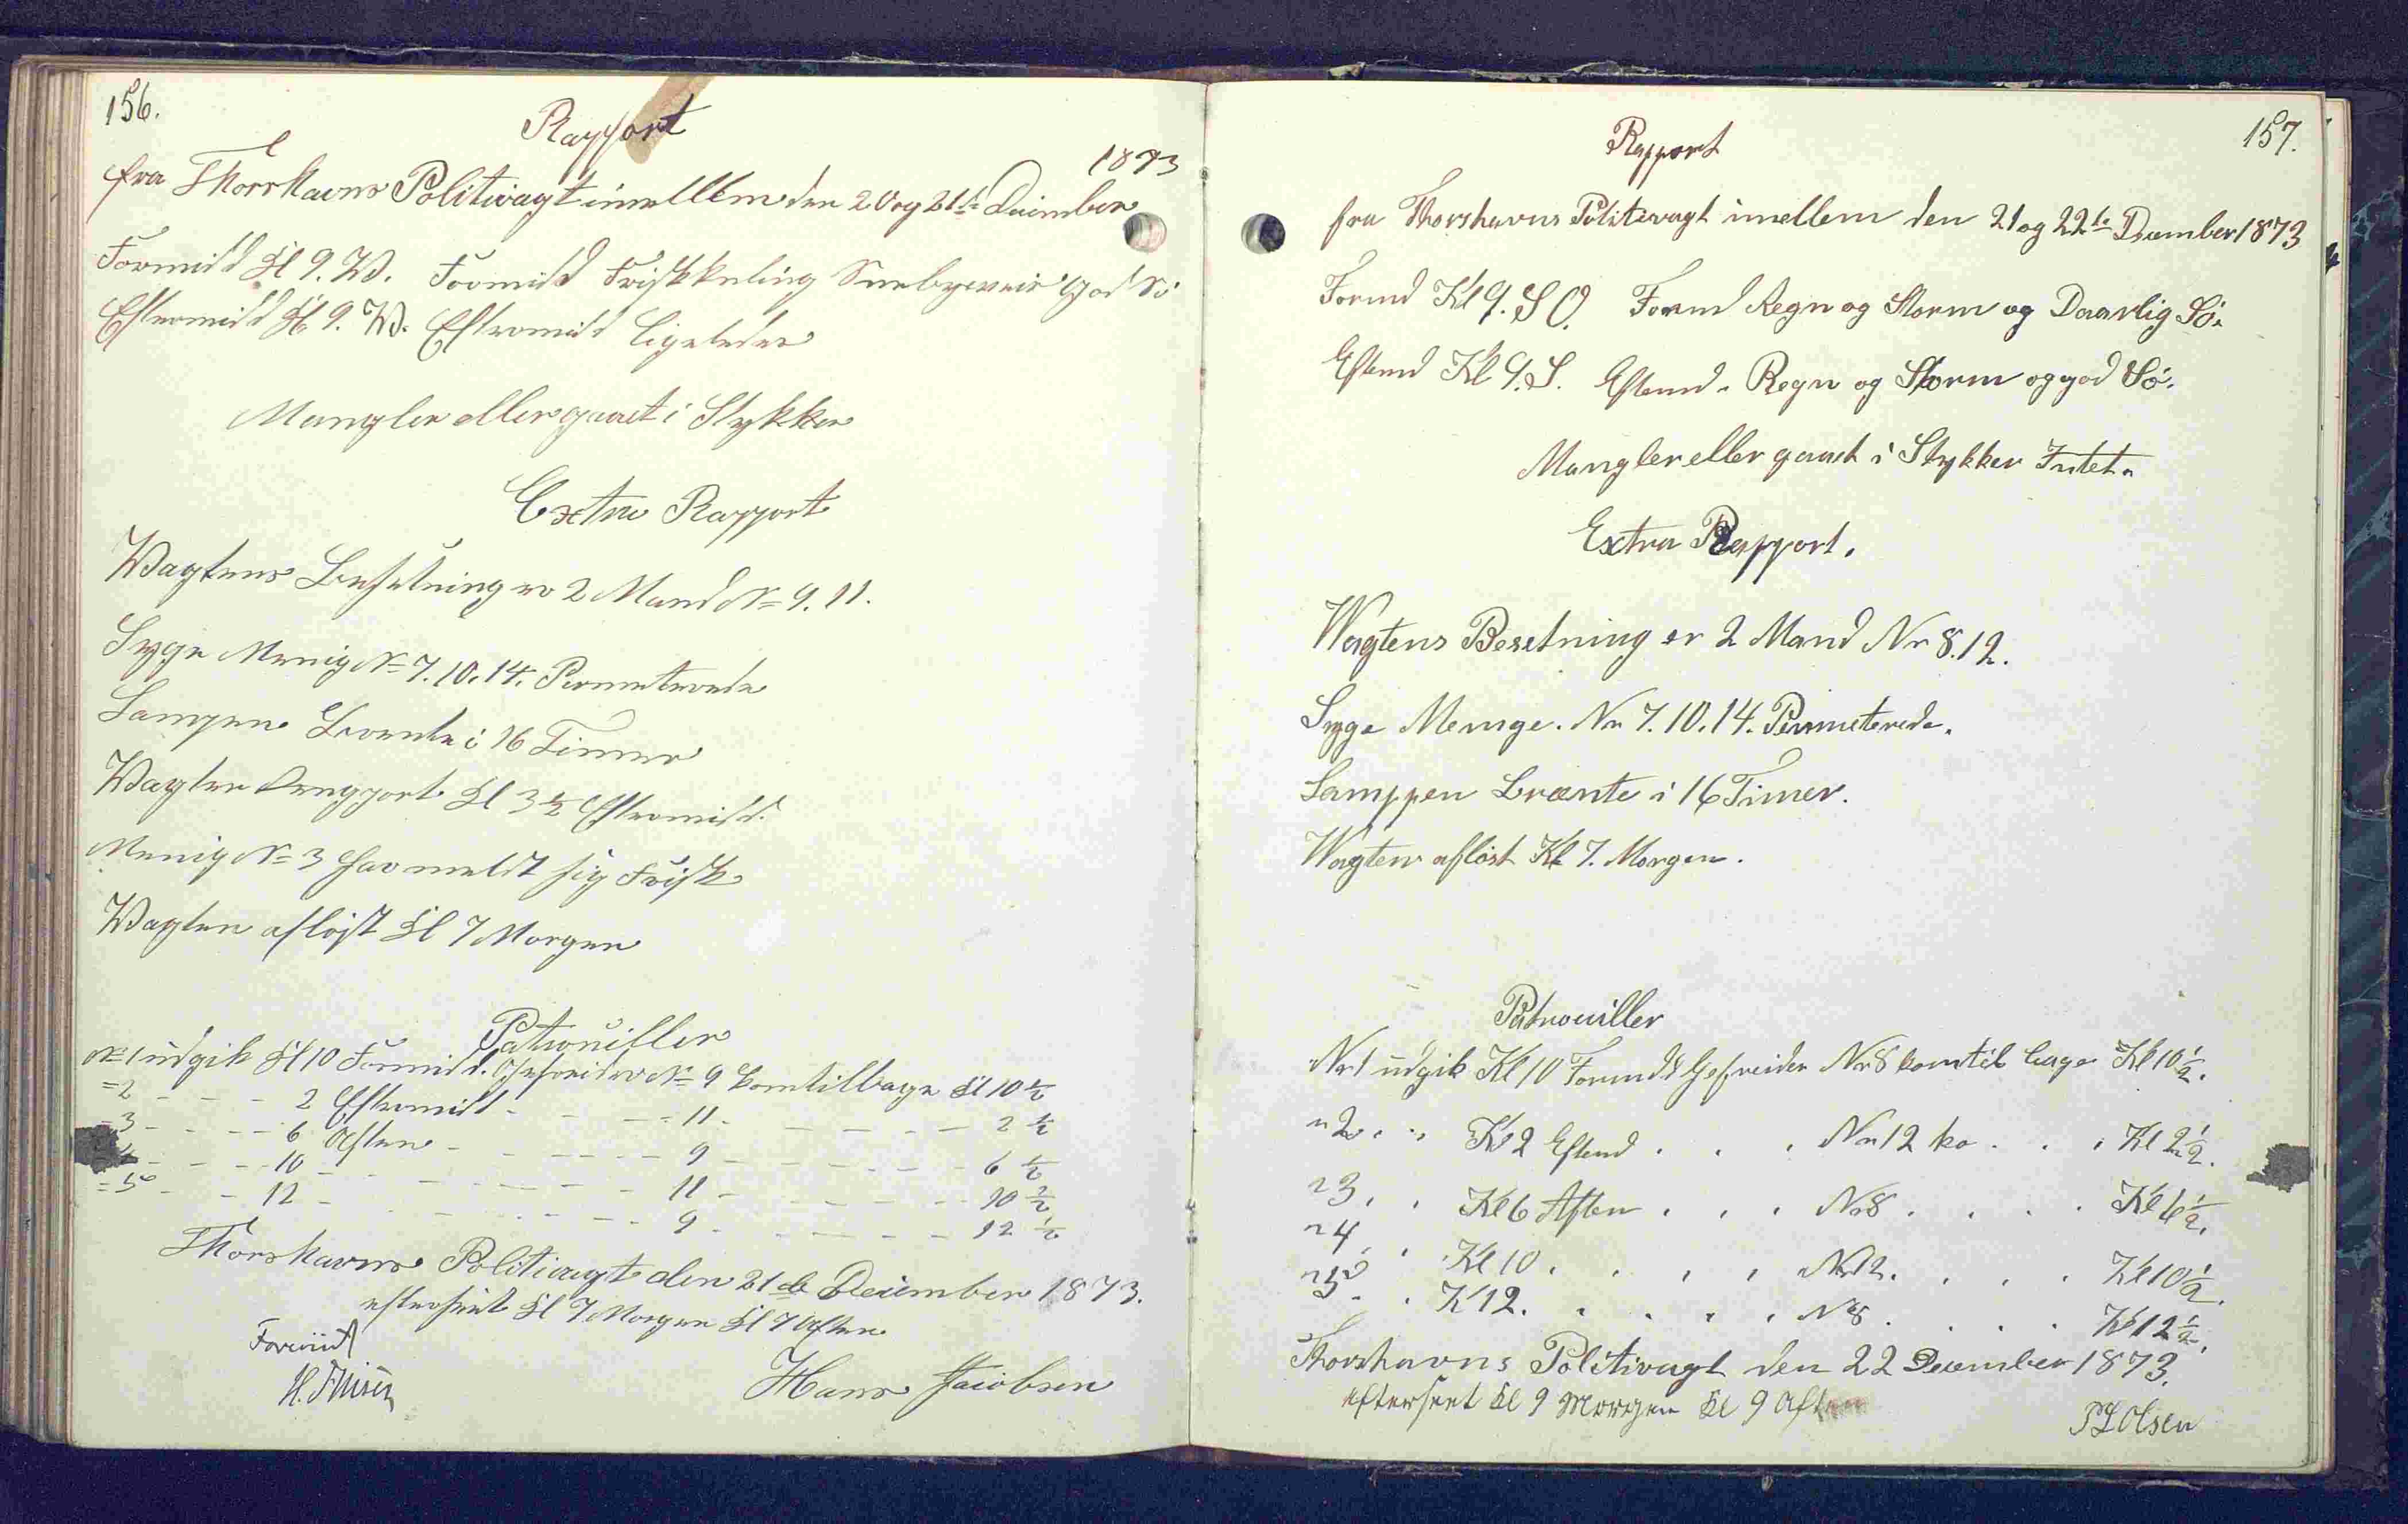 156.
Rapport
1873
fra Thorshavns Politivagt imellem den 20 og 21de Deiember
Formidd Kl 9. W. Formidd Friskkuling Snebyeveir god Sö
Eftermidd Kl 9. W. Eftermidd ligeledes
Mangler eller gaaet i Stykker
Extra Rapport
Wagtens Besetning er 2 Mand No 9. 11.
Syge Menig No 7. 10. 14. Permeterede
Lampen Brente i 16 Timer
Wagten Rapport Kl 3 1/2 Eftermidd.
Menig No 3 har meldt sig Frisk
Wagten aflöst Kl 7 Morgen
Patrouiller
No 1 udgik Kl 10 Formidd. Gefreider No 9 kom tilbage Kl 10 1/2
= 2 - - - 2 Eftermidd - - - 11 - - - - 2 1/2
- 3 - - - 6 Aften - - - 9 - - - - 6 1/2
- - - 10 - - - - 11 - - - - 10 1/2
= 5 - - 12 - - - - 9 - - - - 12 1/2
Thorshavns Politivagt den 21de Deiember 1873.
efterseet Kl 7 Morgen Kl 7 Aften
Hans Jacobsen
157.
Rapport
fra Thorshavns Politivagt imellem den 21 og 22de Deember 1873
Formd Kl 9. S O. Formd Regn og Storm og Daarlig Sö.
Eftemd Kl 9. S. Eftemd. Regn og Storm og god Sö.
Mangler eller gaaet i Stykker Intet.
Extra Rapport.
Wagtens Besetning er 2 Mand Nr 8. 12.
Syge Menige. Nr 7. 10. 14. Permeterede.
Lamppen Brænte i 16 Timer.
Wagten aflöst Kl 7. Morgen.
Patrouiller
Nr 1 udgik Kl 10 Formd Gefreider Nr 8 kom til bage Kl 10 1/2.
" 2 . . Kl 2 Eftemd . . . Nr 12 ko . . . Kl 2 1/2.
" 3 . . Kl 6 Aften . . . Nr 8 . . . . Kl 6 1/2.
" 4 . . Kl 10 . . . . Nr 12 . . . . Kl 10 1/2.
" 5 . . K 12 . . . . Nr 8 . . . . Kl 12 1/2.
Thorshavns Politivagt den 22 Desember 1873.
efterseet Kl 9 Morgen Kl 9 Aften
P L Olsen